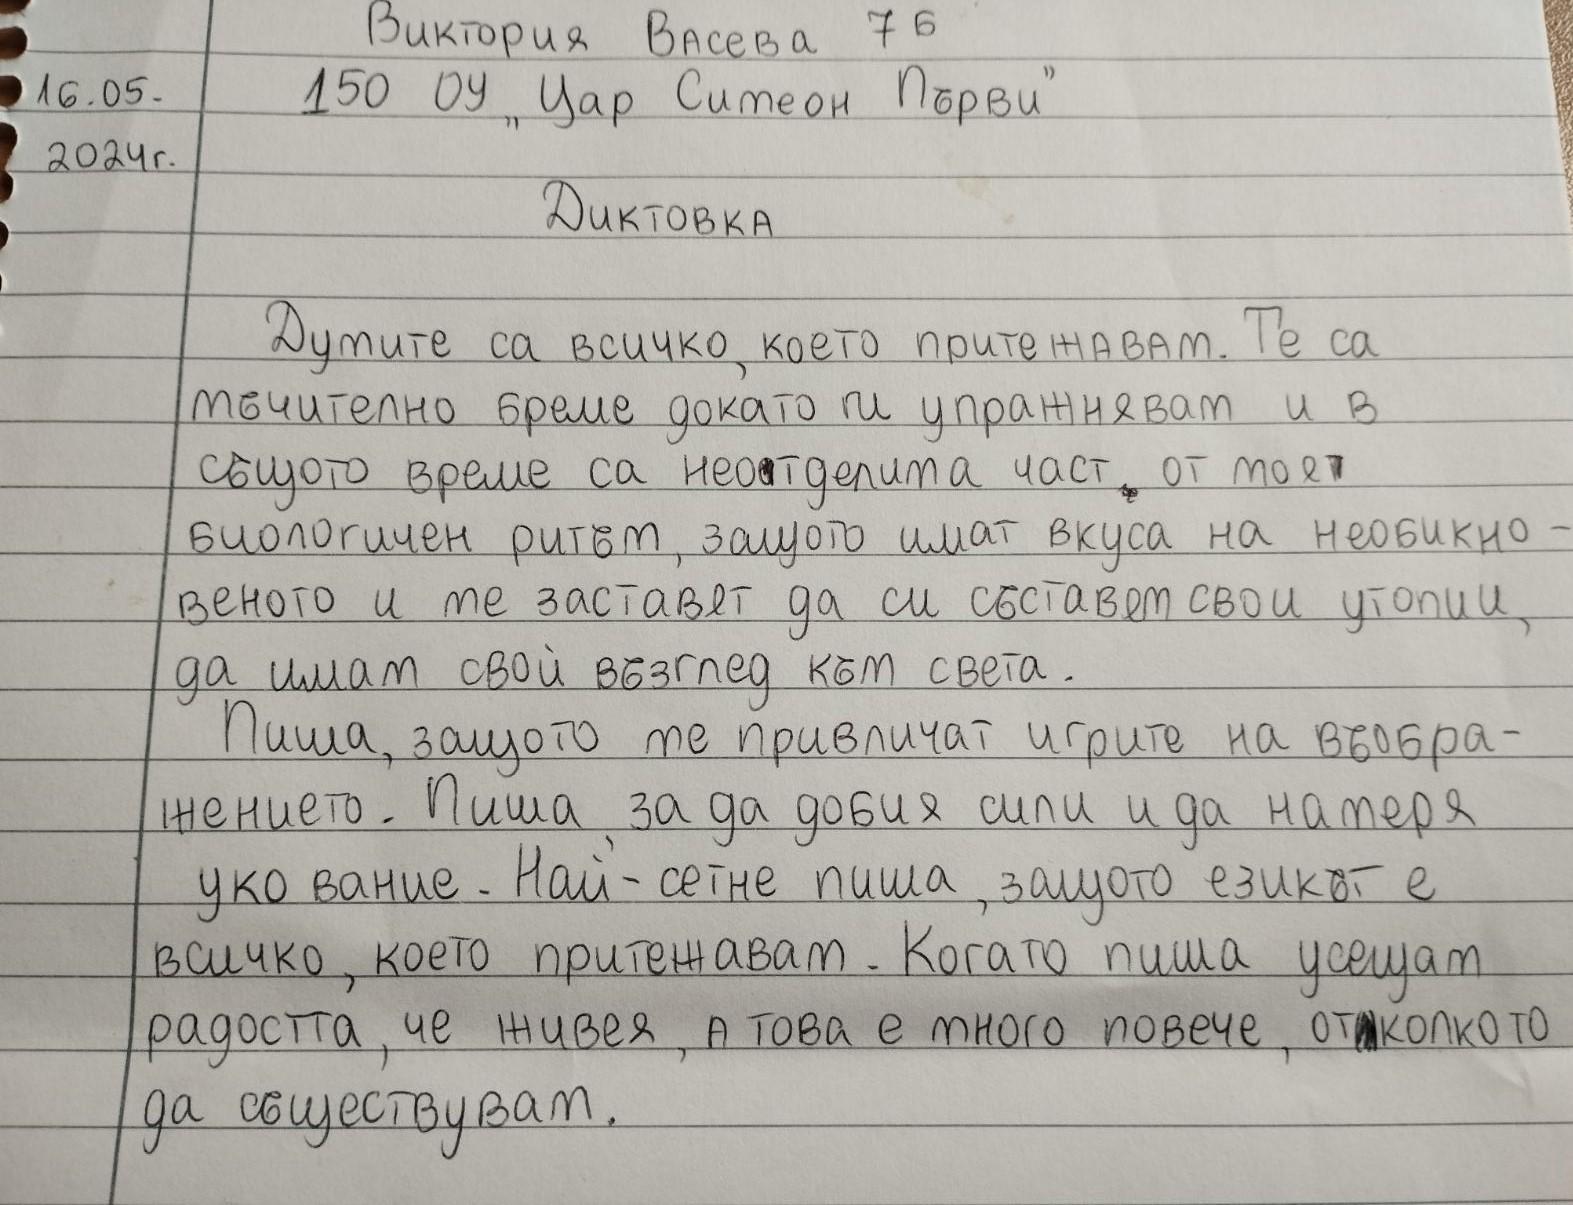 Виктория Васева 7б
16.05. 150 ОУ „Цар Симеон Първи”
2024г.
Диктовка
Думите са всичко, което притежавам. Те са
мъчително бреме докато ги упражнявам и в
същото време са неоотделима част от моят
биологичен ритъм, защото имат вкуса на необикно-
веното и ме заставят да си съставям свои утопии,
да имам свой възглед към света.
Пиша, защото ме привличат игрите на въобра-
жението. Пиша, за да добия сили и да намеря
укование. Най-сетне пиша, защото езикът е
всичко, което притежавам. Когато пиша усещам
радостта, че живея, а това е много повече, отколкото
да съществувам.